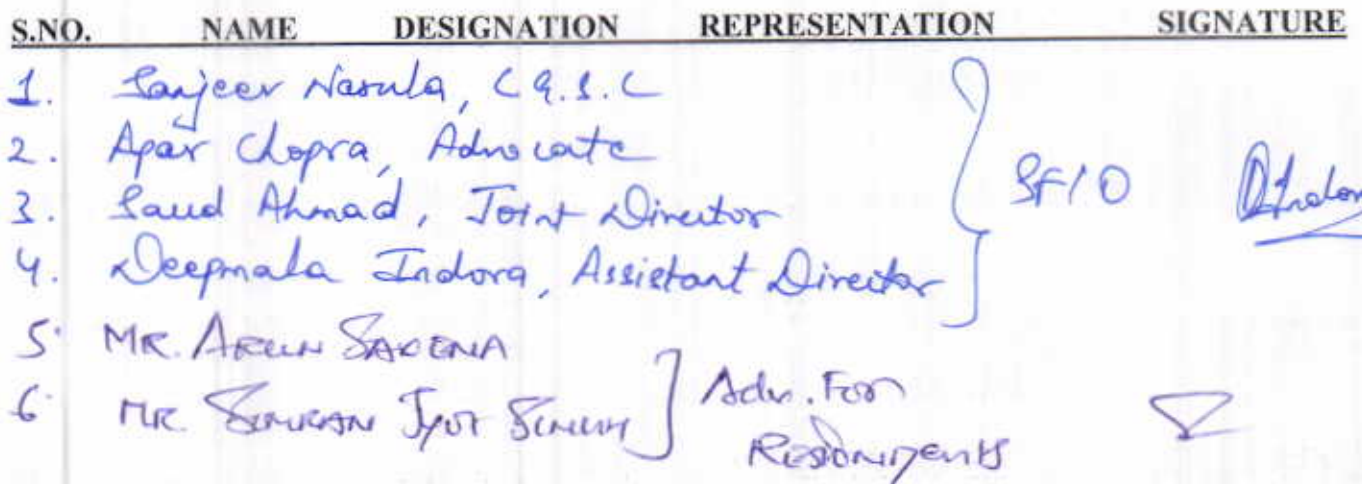 S.NO. NAME DESIGNATION REPRESENTATION SIGNATURE
1. Sanjeev Narula, C.G.S.C
2. Apar Chopra, Advocate
3. Saud Ahmad, Joint Director
SFIO
4. Deepmala Indora, Assistant Director
5. MR. ARUN SAXENA
6. MR. SIMRAN JYOT SINGH
Adv. For
Respondents